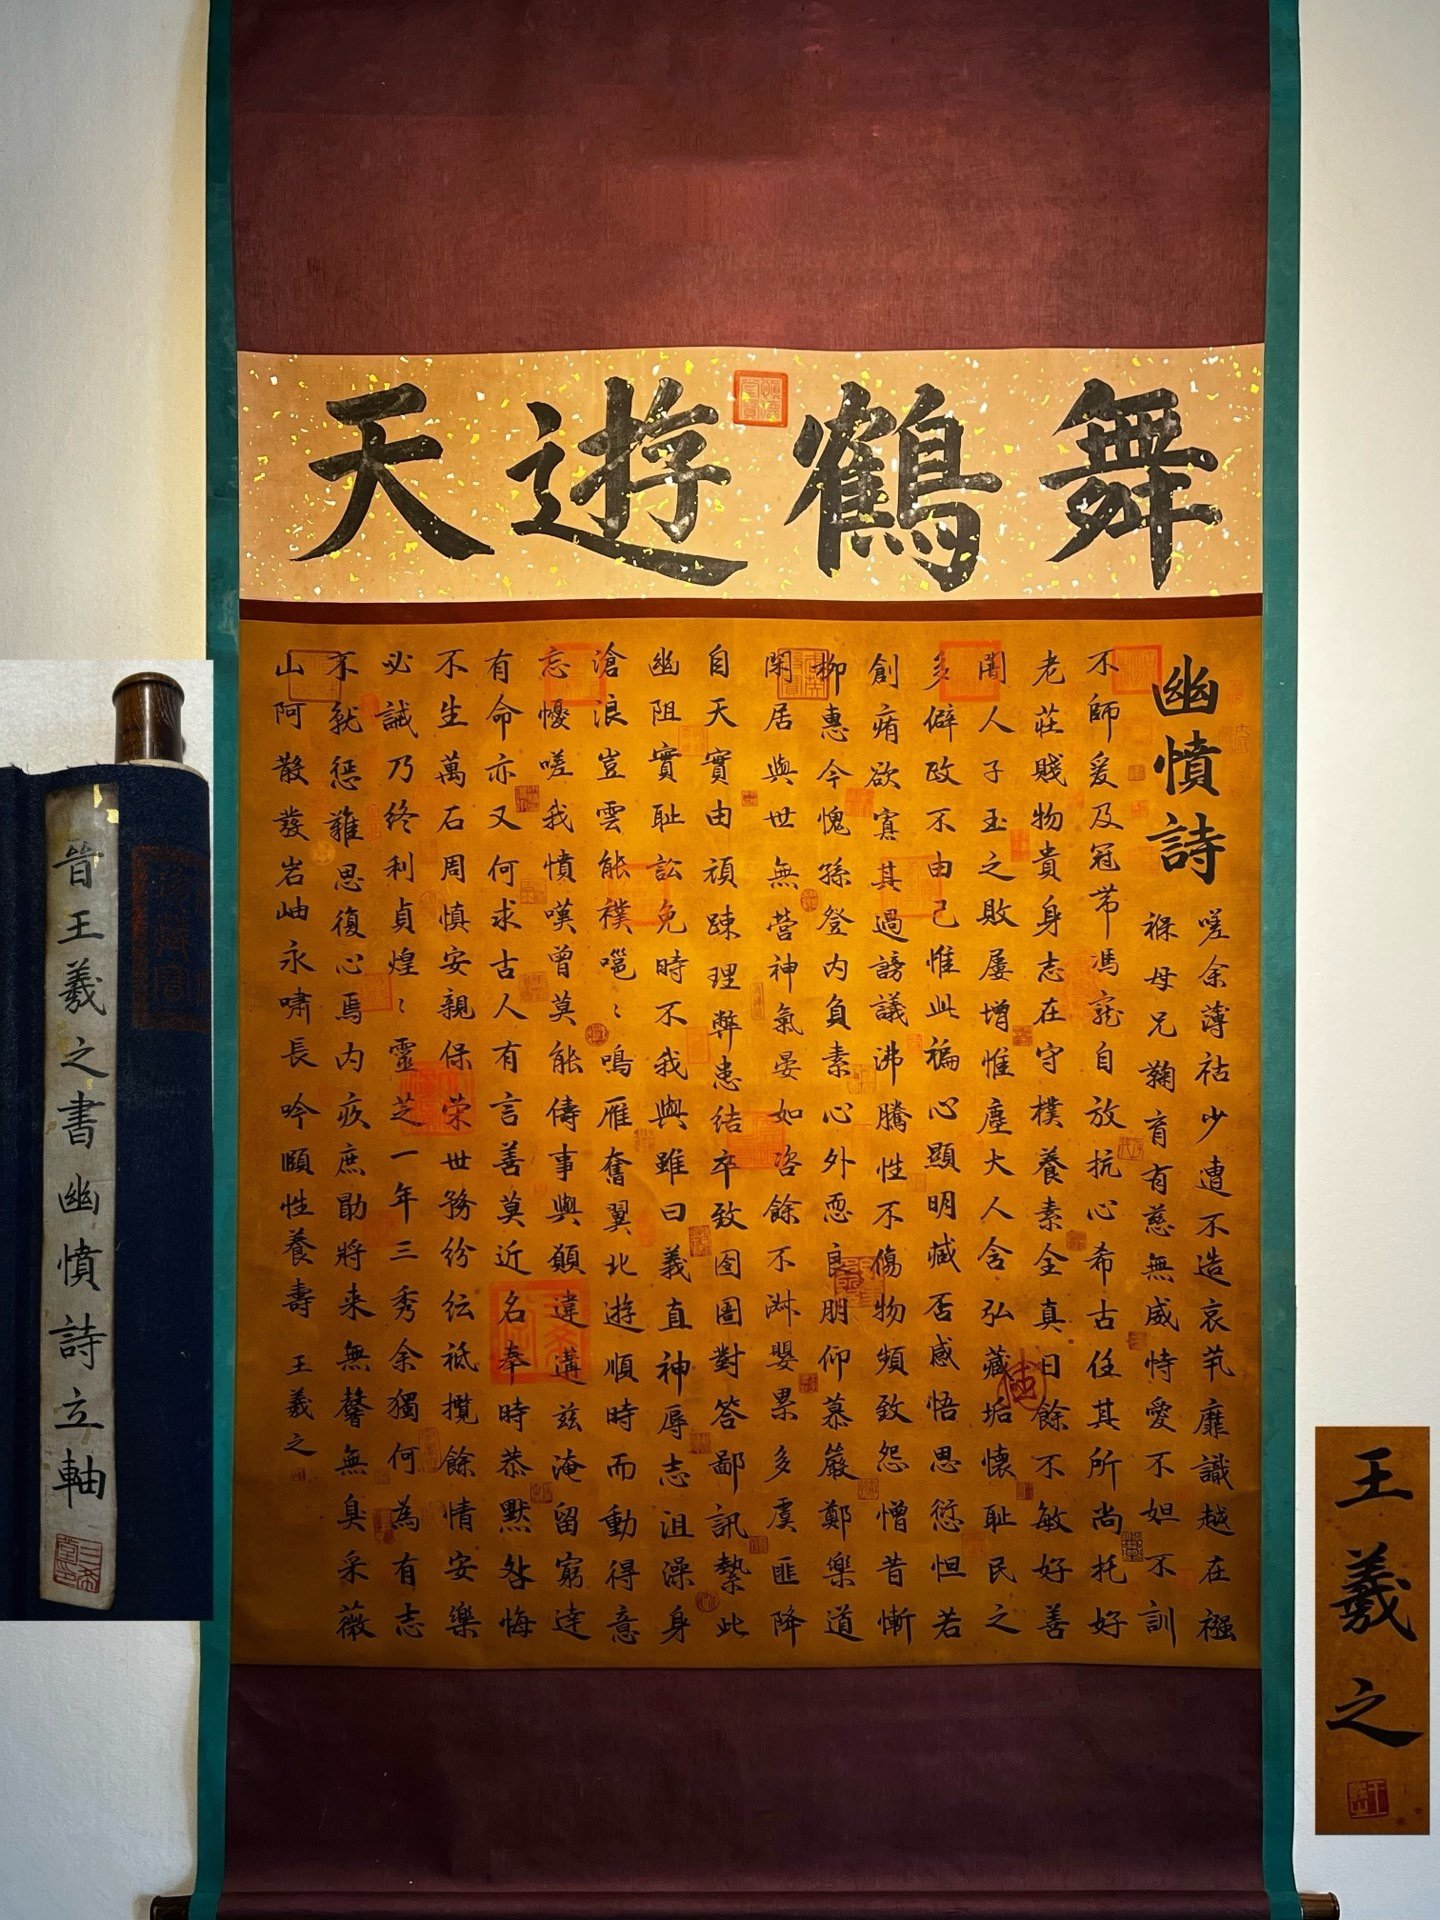 舞鶴遊天
幽憤詩
嗟余薄祜少遭不造哀茕靡識越在襁
褓母兄鞠育有慈無威恃愛不妲不訓
不師爰及冠帯馮寵自放抗心希古任其所尚托好
老莊賤物貴身志在守樸養素全真曰餘不敏好善
闇人子玉之敗屢增惟塵大人含弘藏垢懷耻民之
多僻政不由己惟此褊心顯明臧否感悟思愆怛若
創痏欲寡其過謗議沸騰性不傷物頻致怨憎昔慚
柳惠今愧孫登内負素心外恧良朋仰慕嚴鄭樂道
閑居與世無營神氣晏如咨餘不淋嬰累多虞匪降
自天實由頑踈理弊患結卒致囹圄對答鄙訊縶此
幽阻實耻訟免時不我與雖曰義直神辱志沮澡身
滄浪豈雲能襆嗈〻鳴雁奮翼北遊順時而動得意
忘懮嗟我憤嘆曾莫能儔事與願違遘兹淹留窮達
有命亦又何求古人有言善莫近名奉時恭默咎悔
不生萬石周慎安親保荣世務紛紜祗攬餘情安樂
必誡乃終利貞煌〻靈芝一年三秀余獨何為有志
不就惩難思復心焉内疚庶勖將来無馨無臭采薇
山阿散發岩岫永嘯長吟頤性養壽 王羲之
晋王羲之書幽憤詩立軸
三希堂印
王羲之